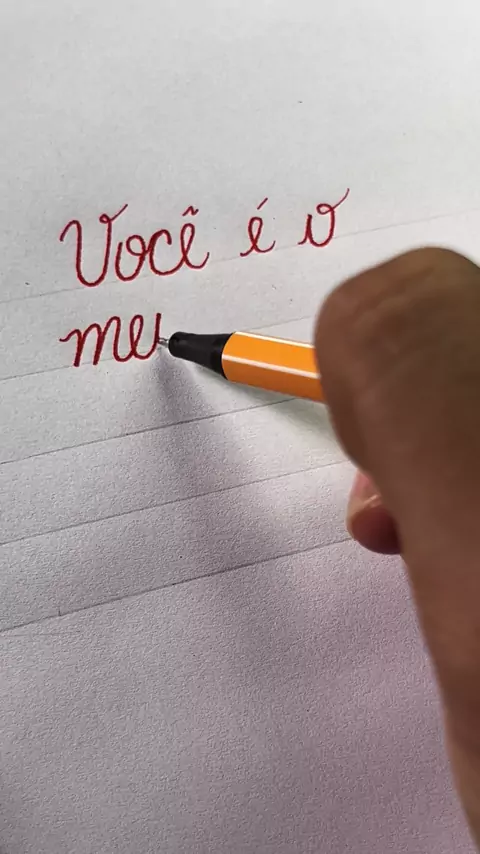 Você é o
meu